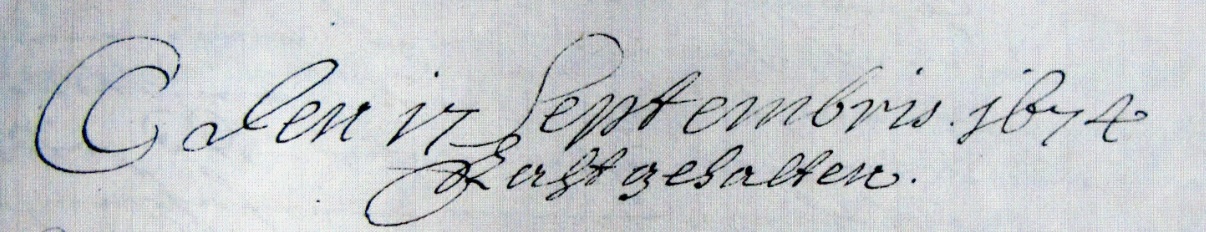 Den 17 Septembris. 1674
Rast gehalten.